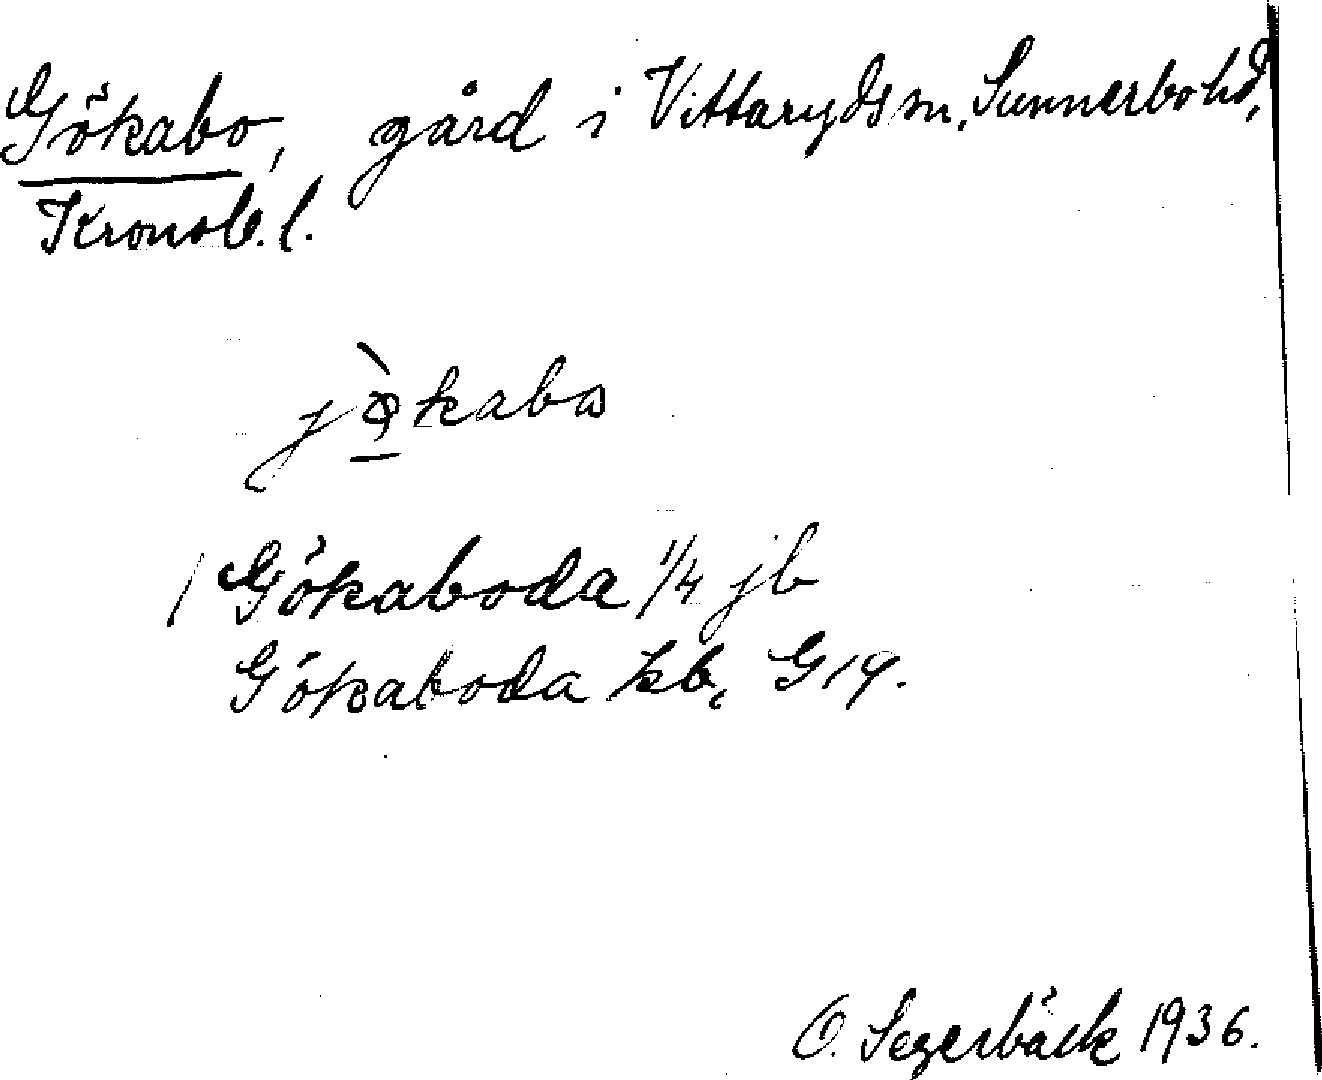 Gökabo, gård i Vittaryds sn, Sunnerbo hd,
Kronob. l.
jø̀kabo
1 Gökaboda 1/4 jb
Gökaboda kb, G 19.
O. Segerbäck 1936.